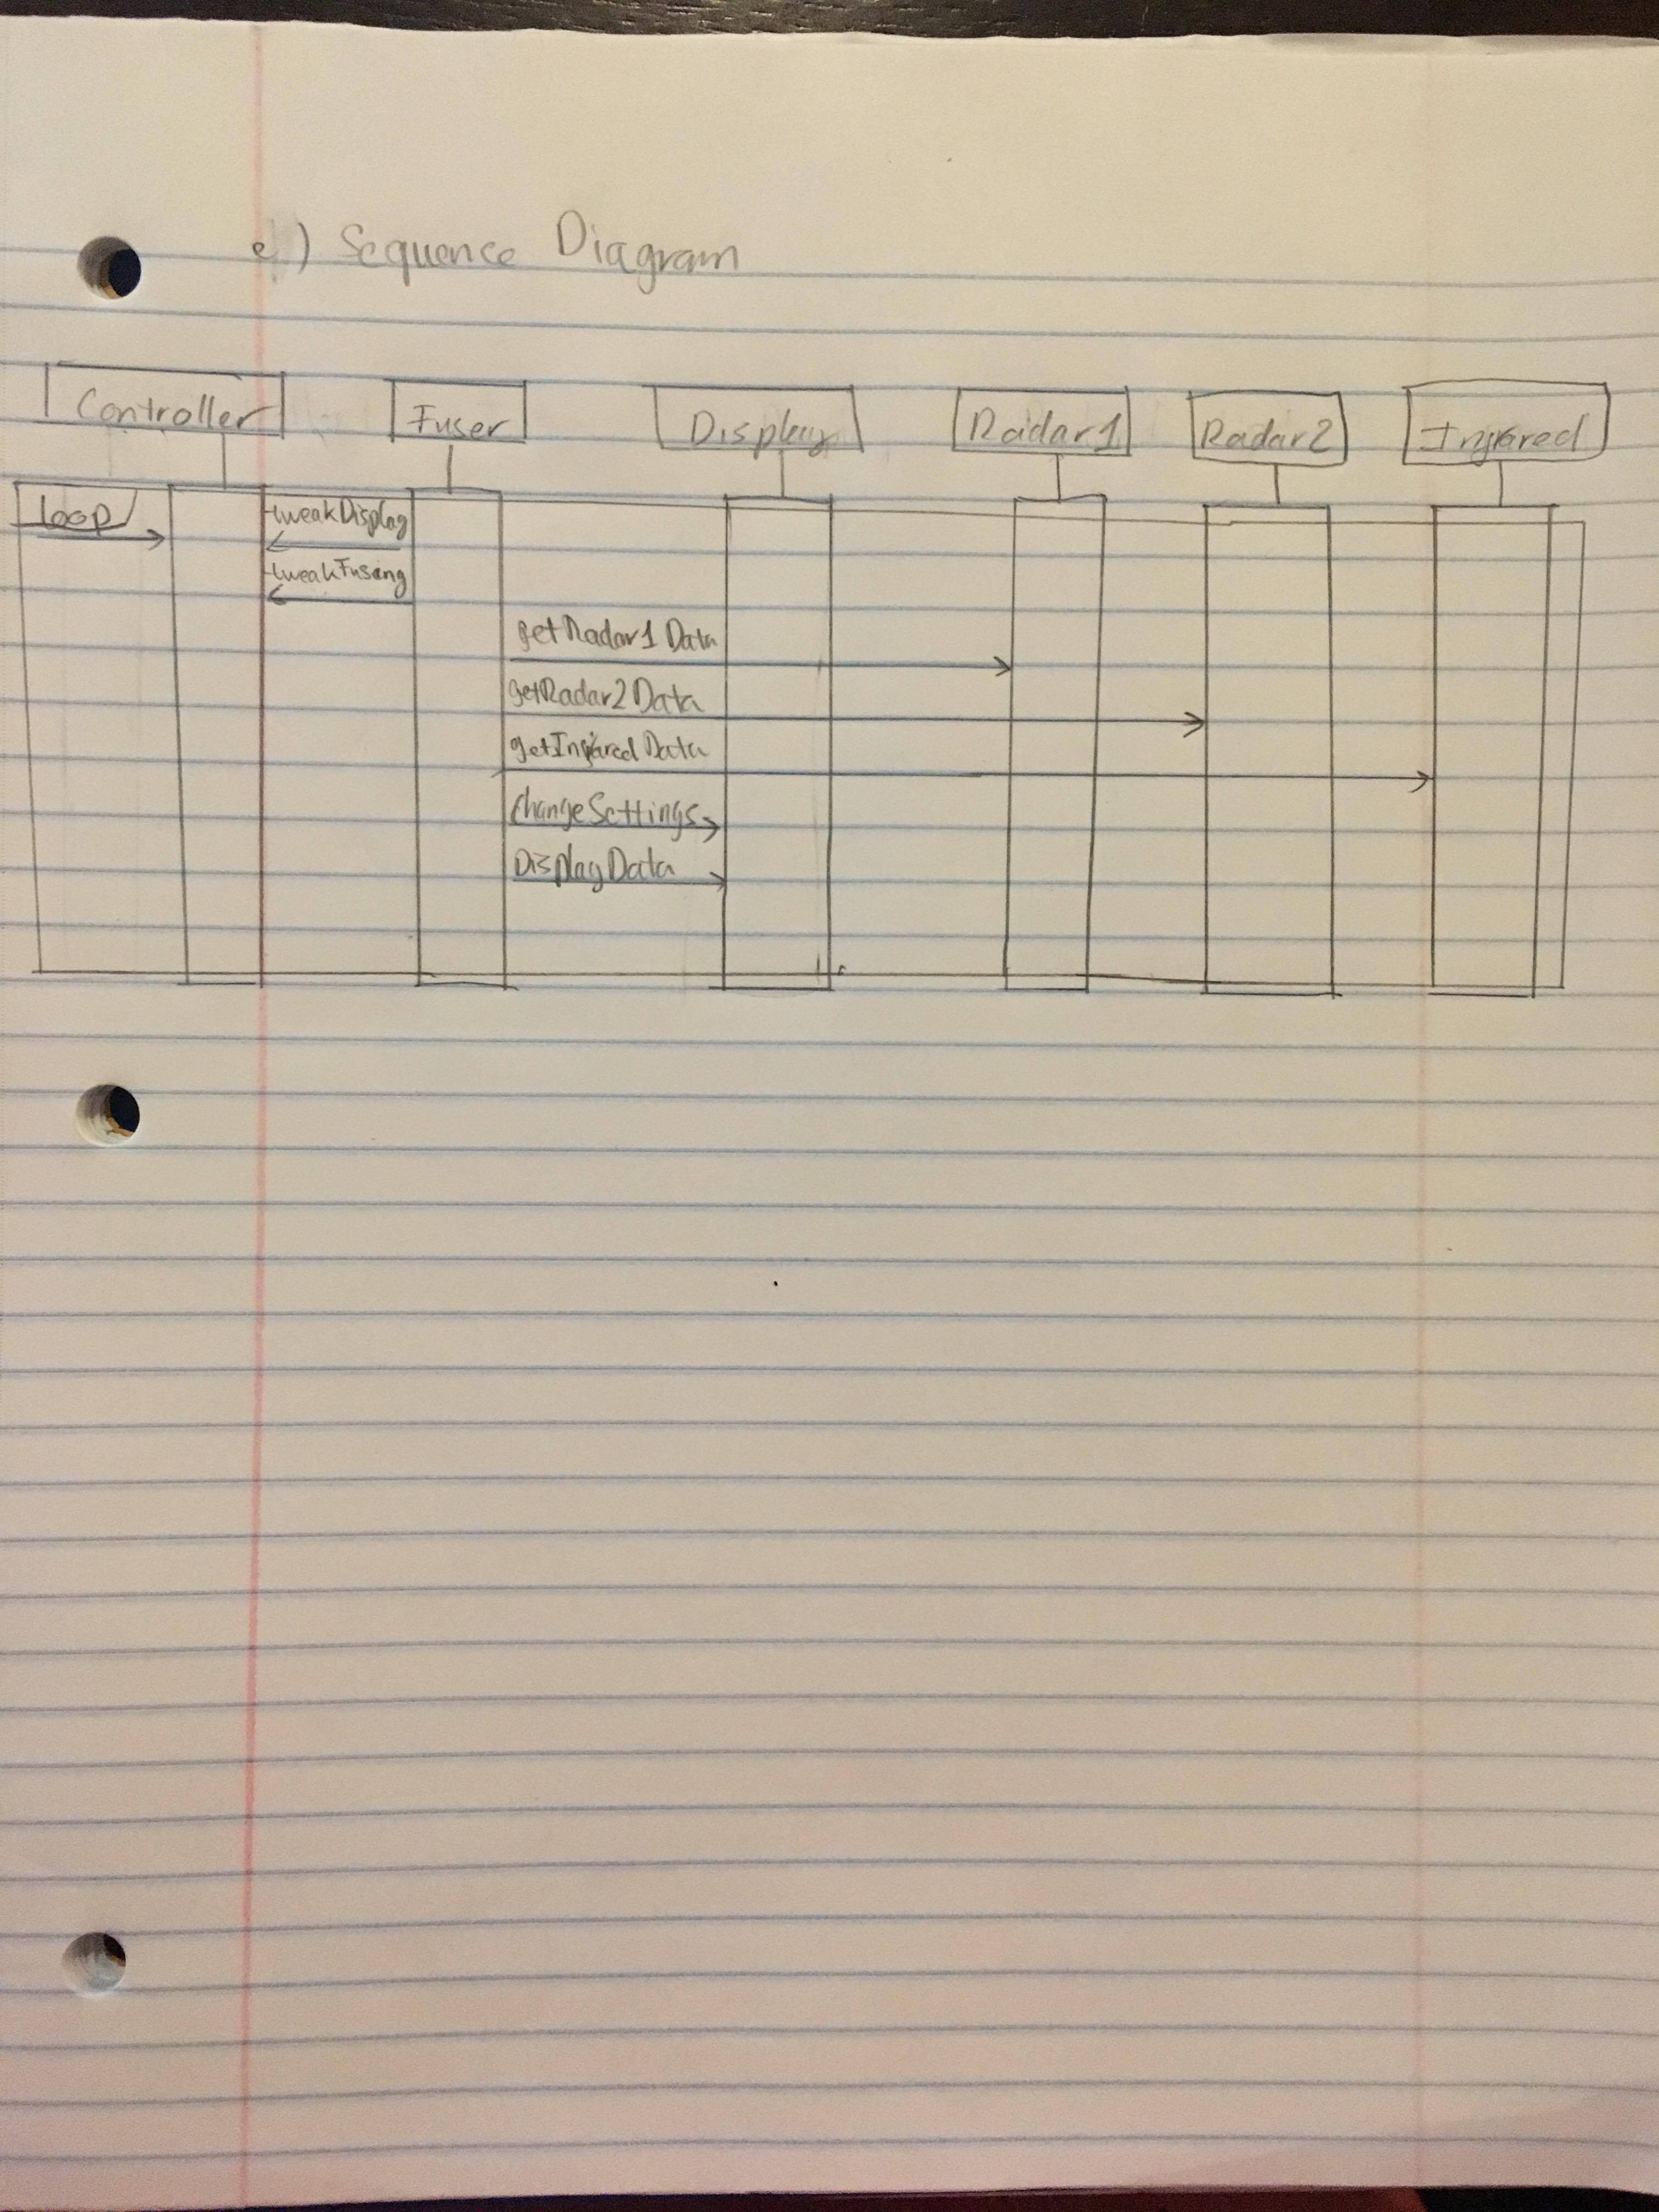 e) Sequence Diagram
Controller
Fuser
Display
Radar1
Radar2
Infrared
loop
tweakDisplay
tweakFusing
getRadar1Data
getRadar2Data
getInfraredData
changeSettings
DisplayData